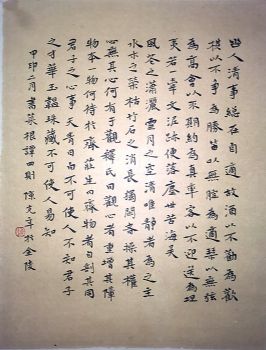 幽人清事總在自適故酒以不勸為歡
棋以不爭為勝笛以無腔為適琴以無弦
為高會以不期約為真率客以不迎送為坦
夷若一牽文泥跡便落塵世苦海矣
風花之瀟灑雪月之空清唯靜者為之主
水木之榮枯竹石之消長獨閒者操其權
心無其心何有于觀釋氏曰觀心者重增其障
物本一物何待於齊莊生曰齊物者自剖其同
君子之心事天青日白不可使人不知君子
之才華玉韞珠藏不可使人易知
甲申二月書菜根譚四則陳於金陵